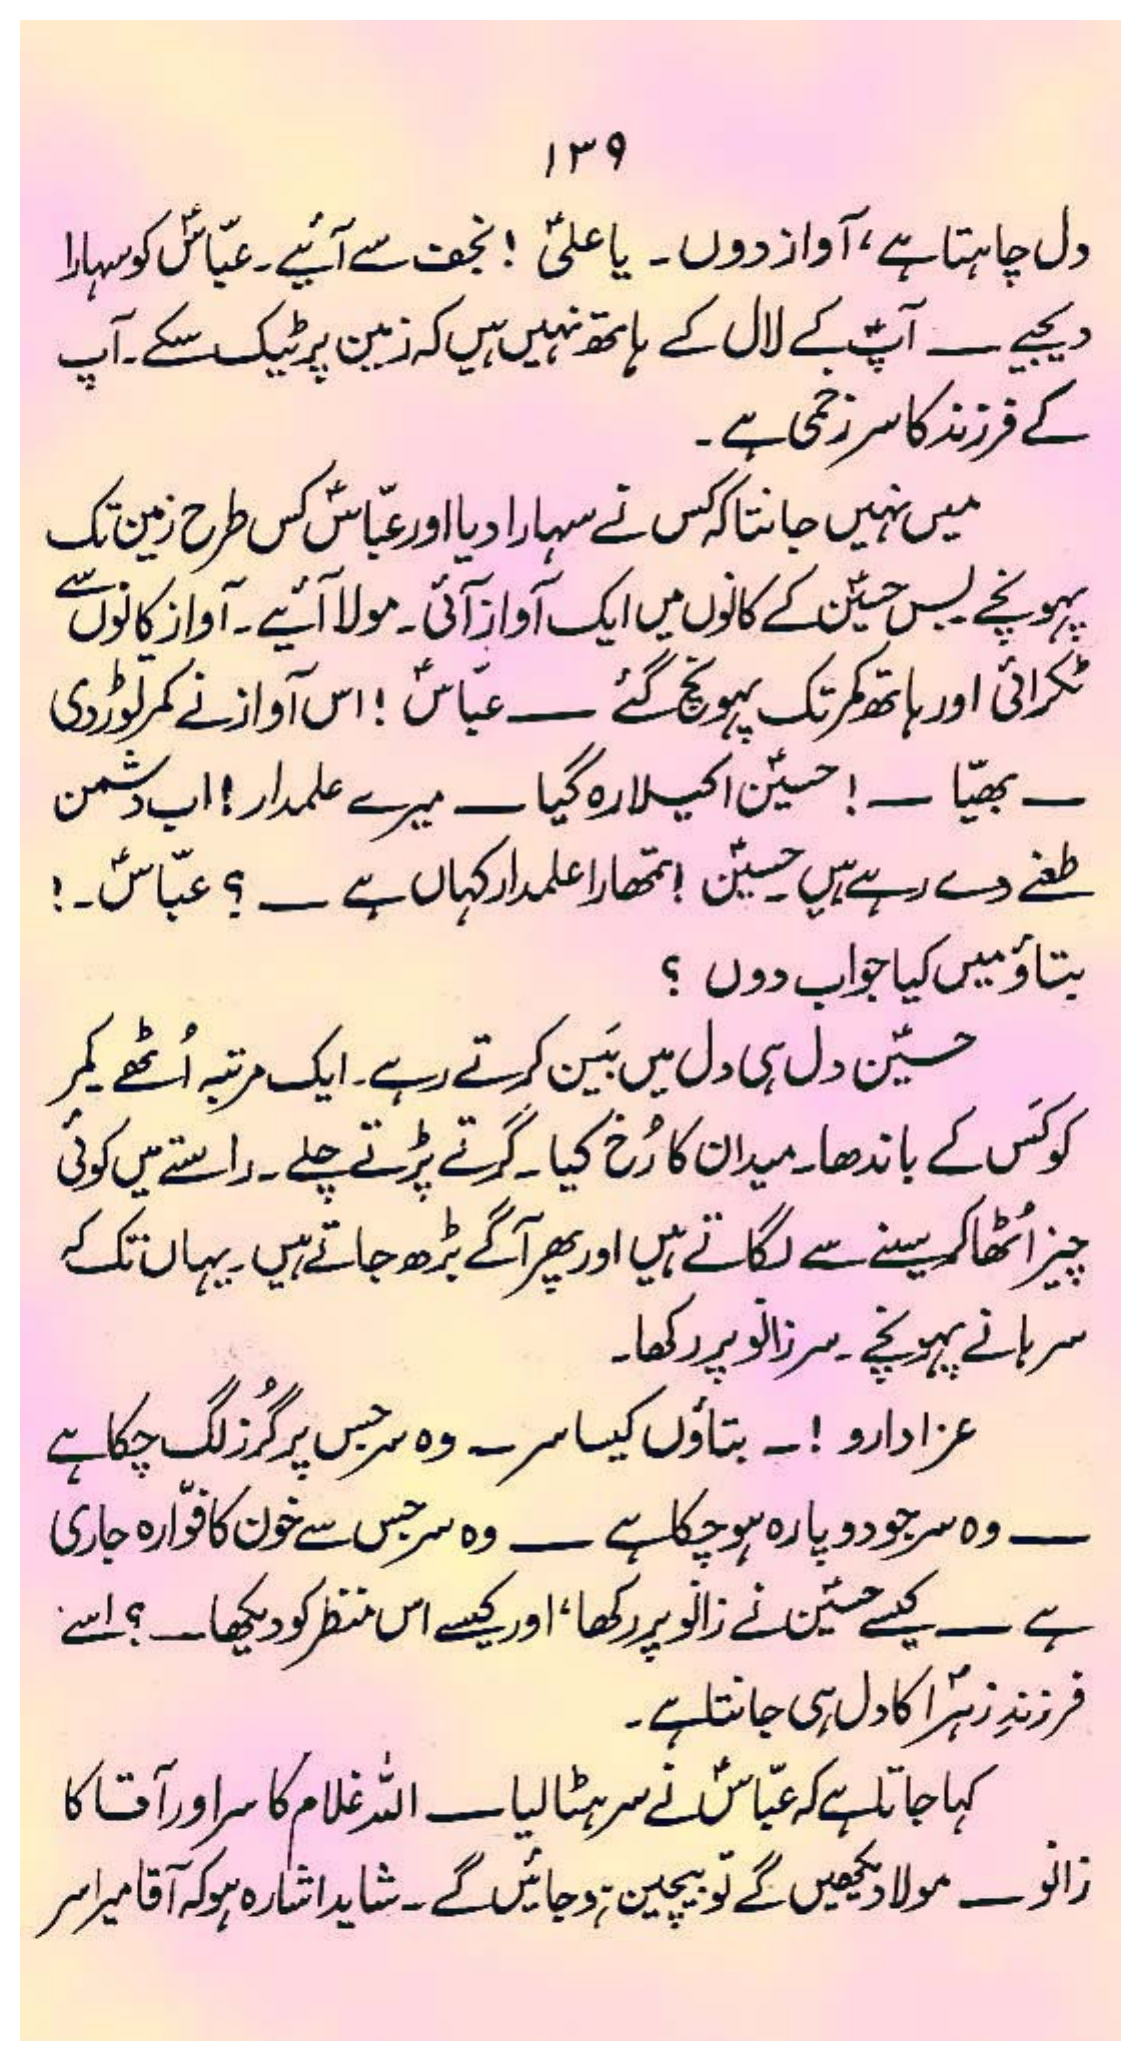 ۱۳۹
دل چاہتا ہے، آواز دوں۔ یا علیؑ! نجف سے آئیے۔ عبّاسؑ کو سہارا
دیجیے — آپؑ کے لال کے ہاتھ نہیں ہیں کہ زمین پر ٹیک سکے۔ آپ
کے فرزند کا سر زخمی ہے۔
میں نہیں جانتا کہ کس نے سہارا دیا اور عبّاسؑ کس طرح زمین تک
پہونچے بس حسینؑ کے کانوں میں ایک آواز آئی۔ مولا آئیے۔ آواز کانوں سے
ٹکرائی اور ہاتھ کمر تک پہونچ گئے — عبّاسؑ! اس آواز نے کمر توڑ دی
— بھیّا —! حسینؑ اکیلا رہ گیا — میرے علمدار! اب دشمن
طعنے دے رہے ہیں حسینؑ! تمھارا علمدار کہاں ہے —؟ عبّاسؑ۔!
بتاؤ میں کیا جواب دوں ؟
حسینؑ دل ہی دل میں بَین کرتے رہے۔ ایک مرتبہ اُٹھے کمر
کو کَس کے باندھا۔ میدان کا رُخ کیا۔ گرتے پڑتے چلے۔ راستے میں کوئی
چیز اُٹھا کر سینے سے لگاتے ہیں اور پھر آگے بڑھ جاتے ہیں۔ یہاں تک کہ
سرہانے پہونچے۔ سر زانو پر رکھا۔
عزادارو! — بتاؤں کیسا سر — وہ سر جس پر گُرز لگ چکا ہے
— وہ سر جو دوپارہ ہو چکا ہے — وہ سر جس سے خون کا فوّارہ جاری
ہے — کیسے حسینؑ نے زانو پر رکھا، اور کیسے اس منظر کو دیکھا —؟ اسے
فرزندِ زہراؑ کا دل ہی جانتا ہے۔
کہا جاتا ہے کہ عبّاسؑ نے سر ہٹا لیا — اللہ غلام کا سر اور آقا کا
زانو — مولا دیکھیں گے تو بیچین ہو جائیں گے۔ شاید اشارہ ہو کہ آقا میرا سر